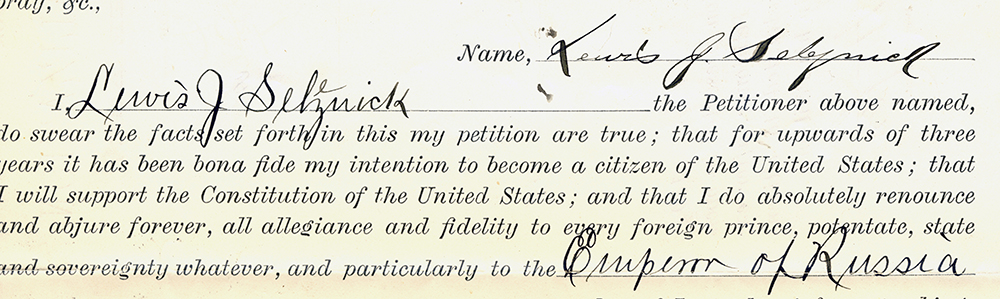 pray, &c.,
Name, Lewis J. Selznick
I, Lewis J Selznick the Petitioner above named,
do swear the facts set forth in this my petition are true; that for upwards of three
years it has been bona fide my intention to become a citizen of the United States; that
I will support the Constitution of the United States; and that I do absolutely renounce
and abjure forever, all allegiance and fidelity to every foreign prince, potentate, state
and sovereignty whatever, and particularly to the Emperor of Russia